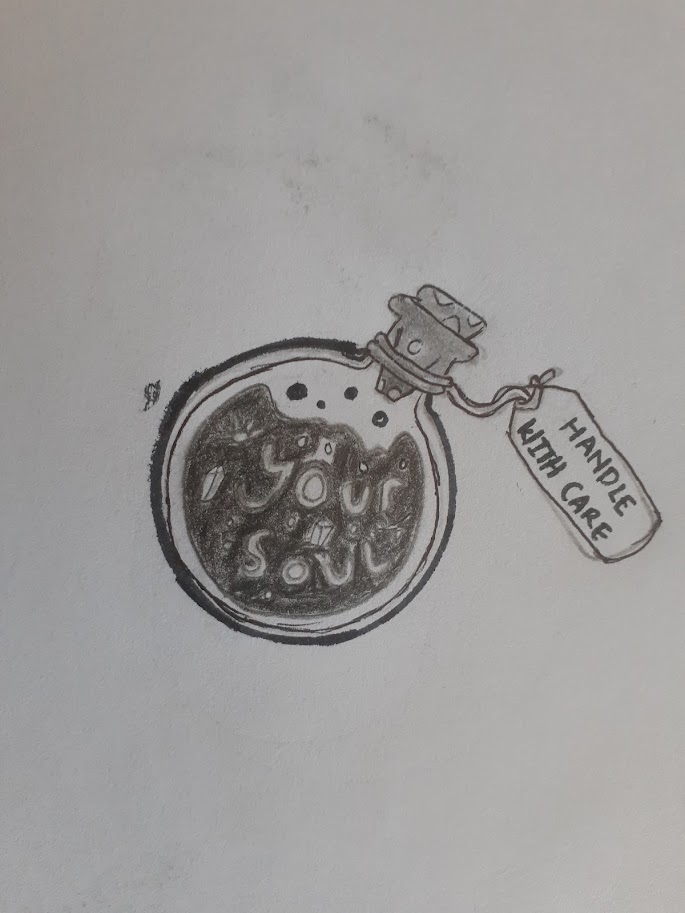 your
soul
HANDLE
WITH CARE